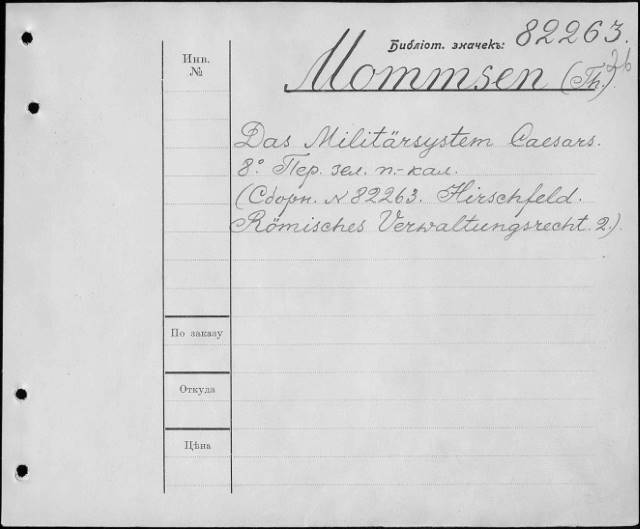 Библіот. значекъ: 82263.
26
Инв.
№
Mommsen (Th.)
Das Militärsystem Caesars.
8° Пер. зел. п.-кал.
(Сборн. № 82263. Hirschfeld.
Römisches Verwaltungsrecht. 2.)
По заказу
Откуда
Цѣна